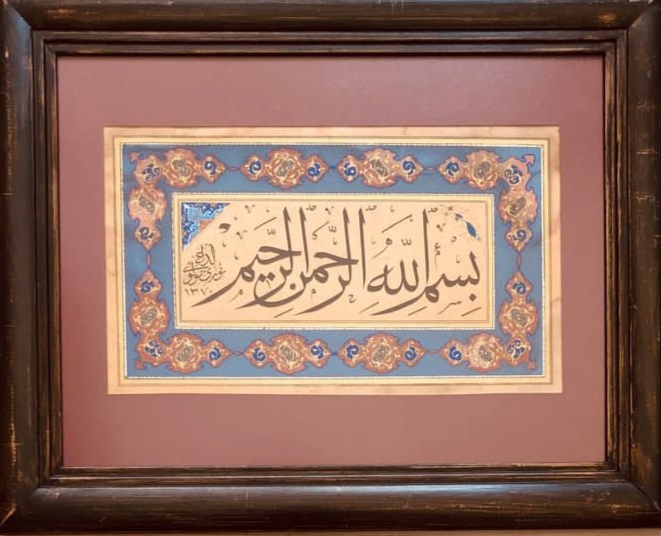 بِسْمِ اللهِ الرَّحْمٰنِ الرَّحِيمِ
١٣٧٠